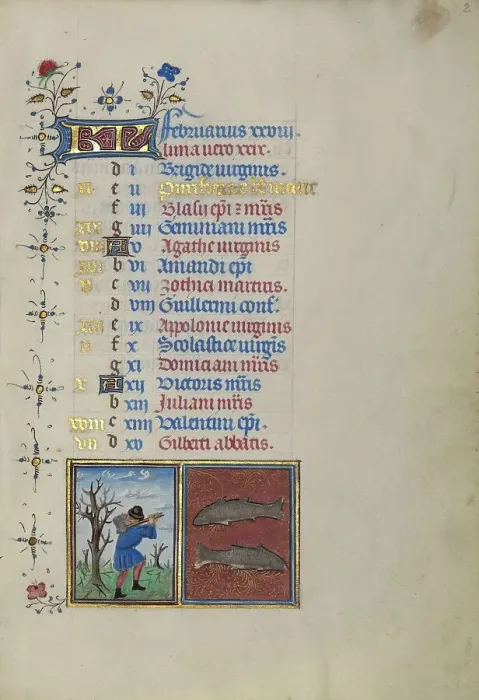 2
KL Februarius xxviii.
luna vero xxix.
d i Brigide virginis.
e ii Purificatio Marie
f iii Blasii epi z mris
g iiii Geminiani mris
A v Agathe virginis
b vi Amandi epi
v c vii Zothici martiris.
d viii Guillermi conf.
e ix Appolonie virginis
ii f x Scolastice virgis
g xi Domiciani mris
x A xii Victoris mris
b xiii Juliani mris
xviii c xiiii Valentini epi.
vii d xv Gilberti abbatis.